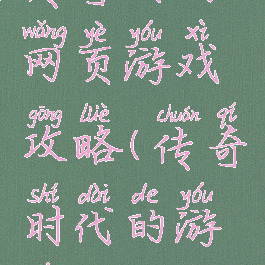 wǎng yè yóu xì
网页游戏
gōng lüè chuán qí
攻略(传奇
shí dài de yóu
时代的游